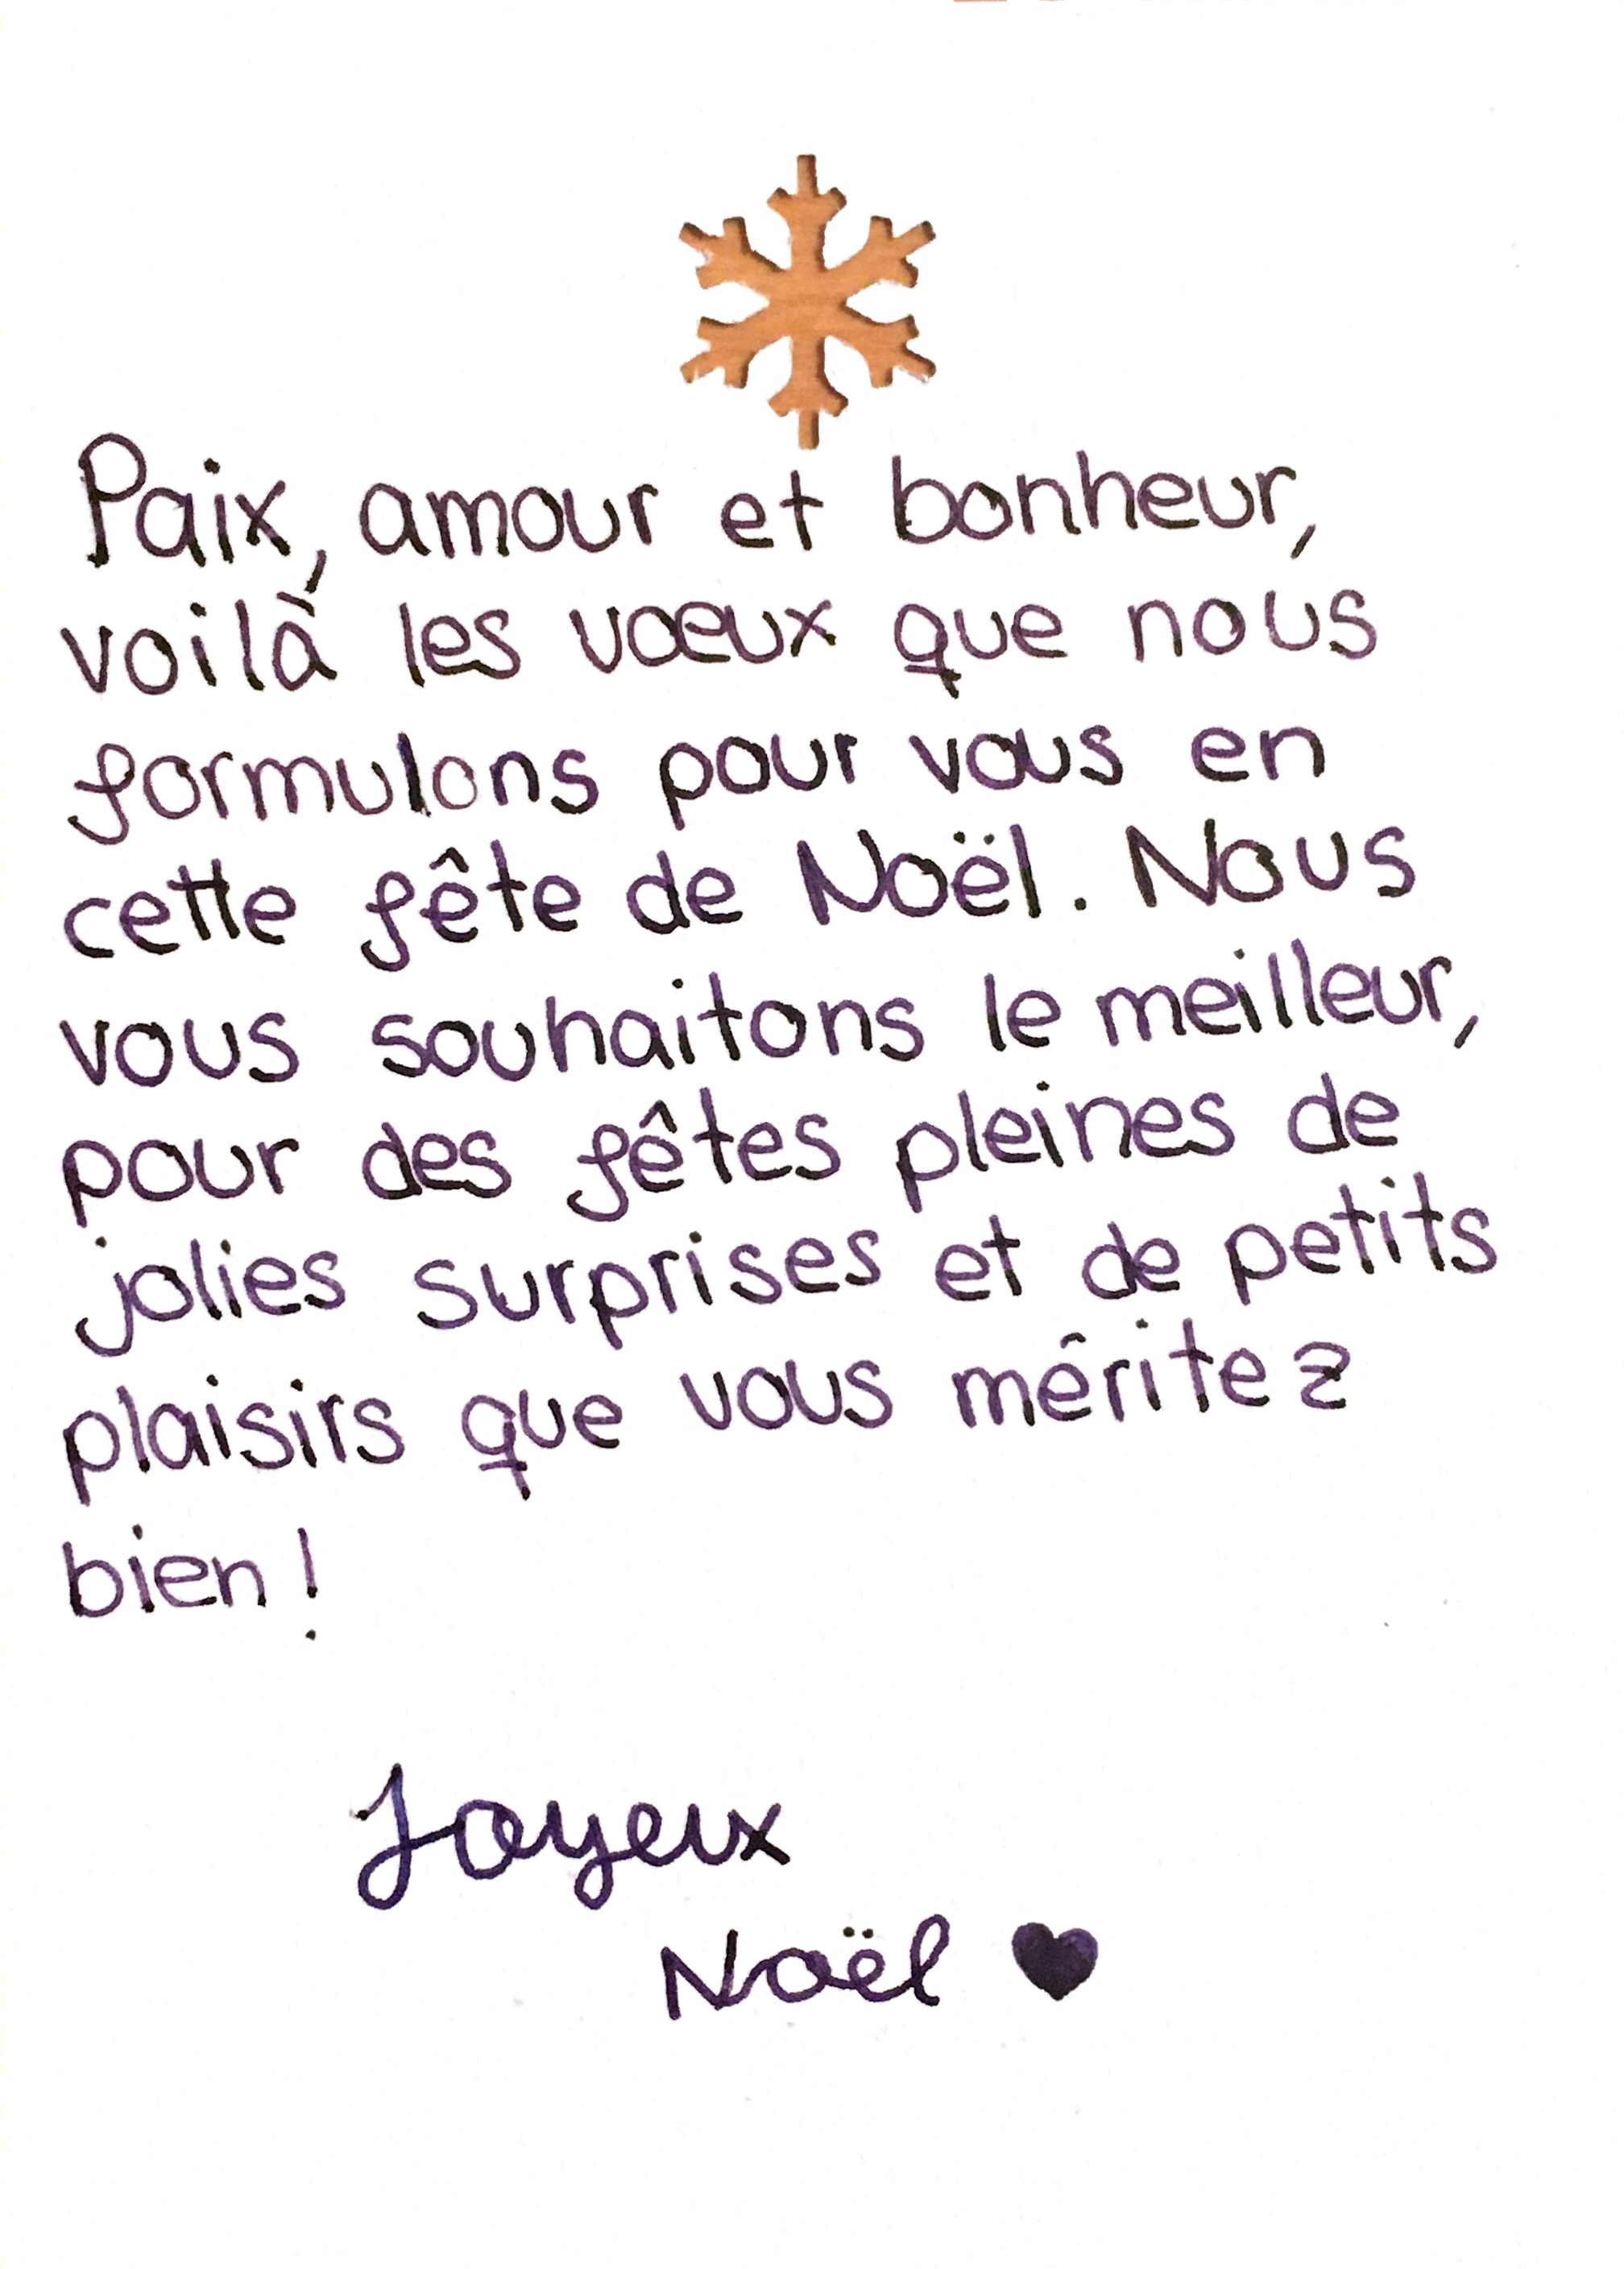 Paix, amour et bonheur,
voilà les vœux que nous
formulons pour vous en
cette fête de Noël. Nous
vous souhaitons le meilleur,
pour des fêtes pleines de
jolies surprises et de petits
plaisirs que vous méritez
bien !
Joyeux
Noël ♥